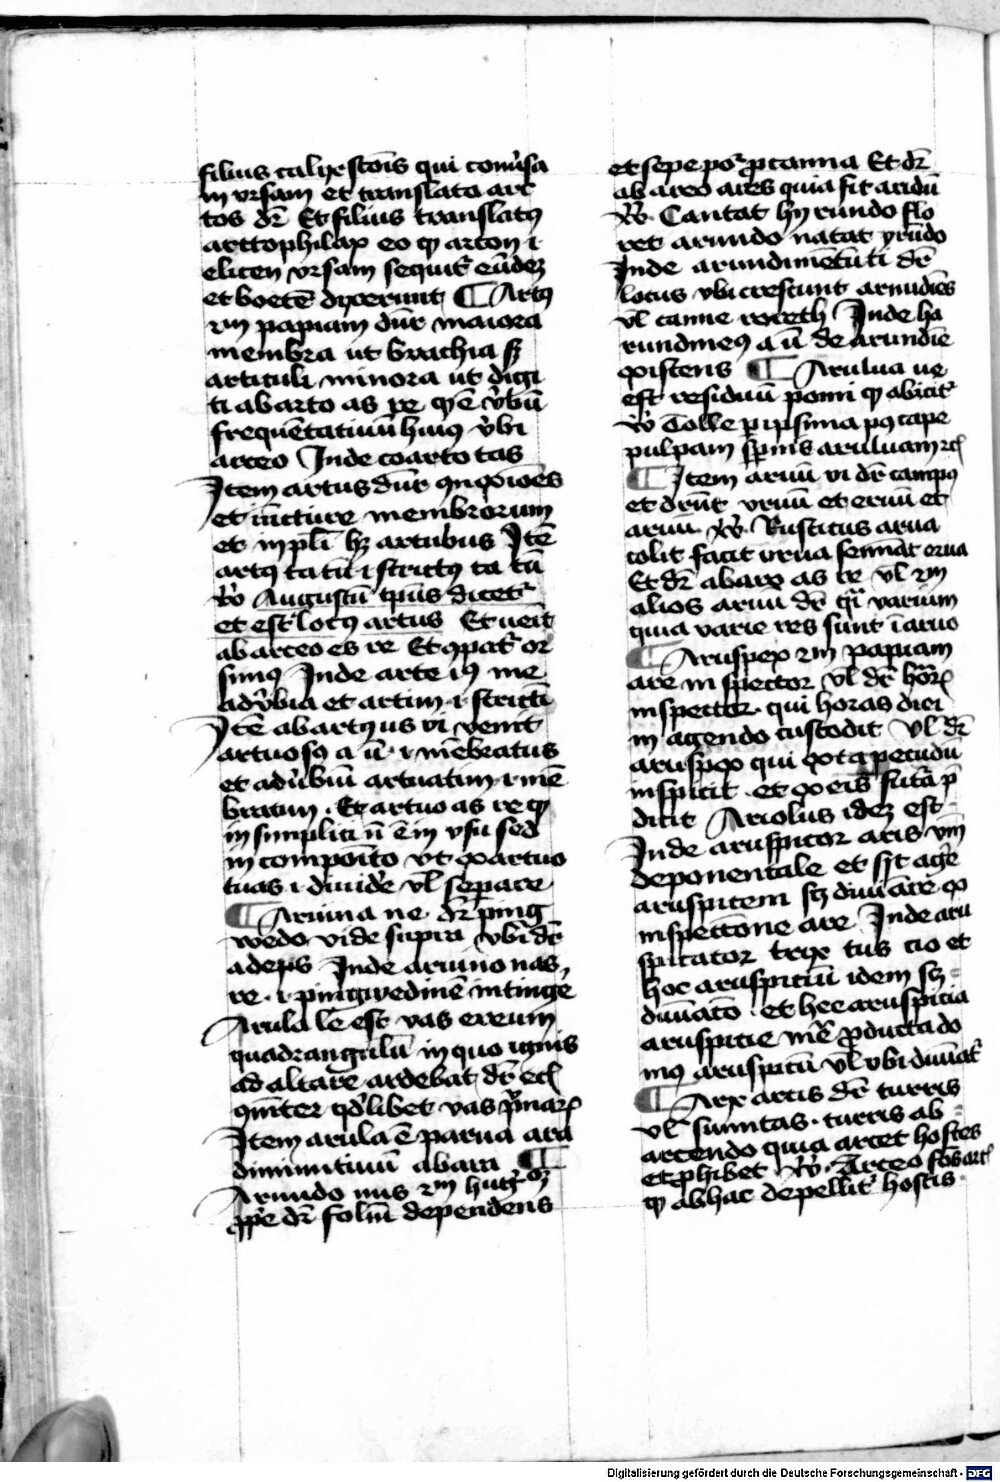 filius calixstonis qui conu̓sa
in vrsam et translata arc
tos dr̄ Et filius translatꝯ
arctophilax eo ꝙ arcton .i.
elicen vrsam sequit᷑ eūdeꝫ
et boetē dixerunt ¶ Artꝯ
m̄ papiam dūr maiora
membra ut brachia sꝫ
articuli minora ut digi
ti ab arto as re ꝙ ē v̓bū
frequētatiuū huiꝯ v̓bi
arceo Inde coarto tas
Item artus dūr ꝯnexiōes
et iūcture membrorum
et in pl̄i hꝫ artubus Itē
artꝯ ta tū .i. strictꝯ ta tū
v̓o Augustū tp̄us dicet᷑
et est locꝯ artus Et uēit
ab arceo es re Et ꝯpat᷑ or
simꝯ Inde arte iꝯ me
adv̓bia et artim .i. stricti
Itē ab artꝯ us ui venit
artuosꝯ a ū .i. mēbratus
et adu̓biū artuatim .i. mē
bratim . Et artuo as re ꝙ
in simplici n̄ ē in vsu sed
in compoīto vt exartuo
tuas .i. diuide̓ vl̄ separe
¶ Aruina ne dr̄ ping
wedo vide supra vbi dr̄
adeps Inde aruino nas
re .i. pingwedinē intinge
Arula le est vas ereum
quadrangulū in quo ignis
ad altare ardebat dr̄ ecī
qm̄ter qd̓libet vas
Item arula ē parua ara
diminutiuū ab ara ¶
Arundo nus m̄
ꝓpe dr̄ foliū dependens
et sepe por̄ ꝓ canna Et dr̄
ab areo ares quia fit aridū
v̓o. Cantat hyrundo flo
ret arundo natat yrūdo
Inde arundinētū ti dr̄
locus vbi crescunt arundīes
vl̄ canne roreth Inde ha
rundineꝯ a ū de arundīe
existens ¶ Arulua ue
est residuū pomi ꝙ abicit᷑
v̓o Tolle ꝑipsima pꝯ cape
pulpam aruluam ⁊c̄
¶ Item aruū ui dr̄ campꝯ
et dr̄nt vruū et eruū et
aruū v̓o. Rusticus arua
colit facit vrua semīat erua
Et dr̄ ab aro as re vl̄ m̄
alios aruū dr̄ qi̓ varium
quia varie res sunt ī aruo
¶ Aruspex m̄ papiam
are inspector vl̄ dr̄ hor̄
inspector . qui horas diei
in agendo custodit vl̄ dr̄
aruspex qui exta pecudū
inspicit . et ex eis futā p̄
dicit Ariolus ideꝫ est
Inde aruspicor aris vm̄
deponentale et sīt age̓
aruspicem sꝫ diuinare ex
inspectione are Inde aru
spicator trix tus cio et
hoc aruspiciū idem sꝫ
diuinatō . et hec aruspicia
aruspicie mē ꝓducta do
mꝯ aruspicū vl̄ vbi diuinat᷑
¶ Arx arcis dr̄ turris
vl̄ sum̄itas . turris ab
arcendo quia arcet hostes
et ꝓhibet v̓o. Arceo
ꝙ ab hac depellit᷑ hostis
Digitalisierung gefördert durch die Deutsche Forschungsgemeinschaft - DFG